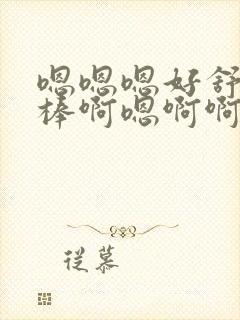 嗯嗯嗯好舒
棒啊嗯啊啊
従慕